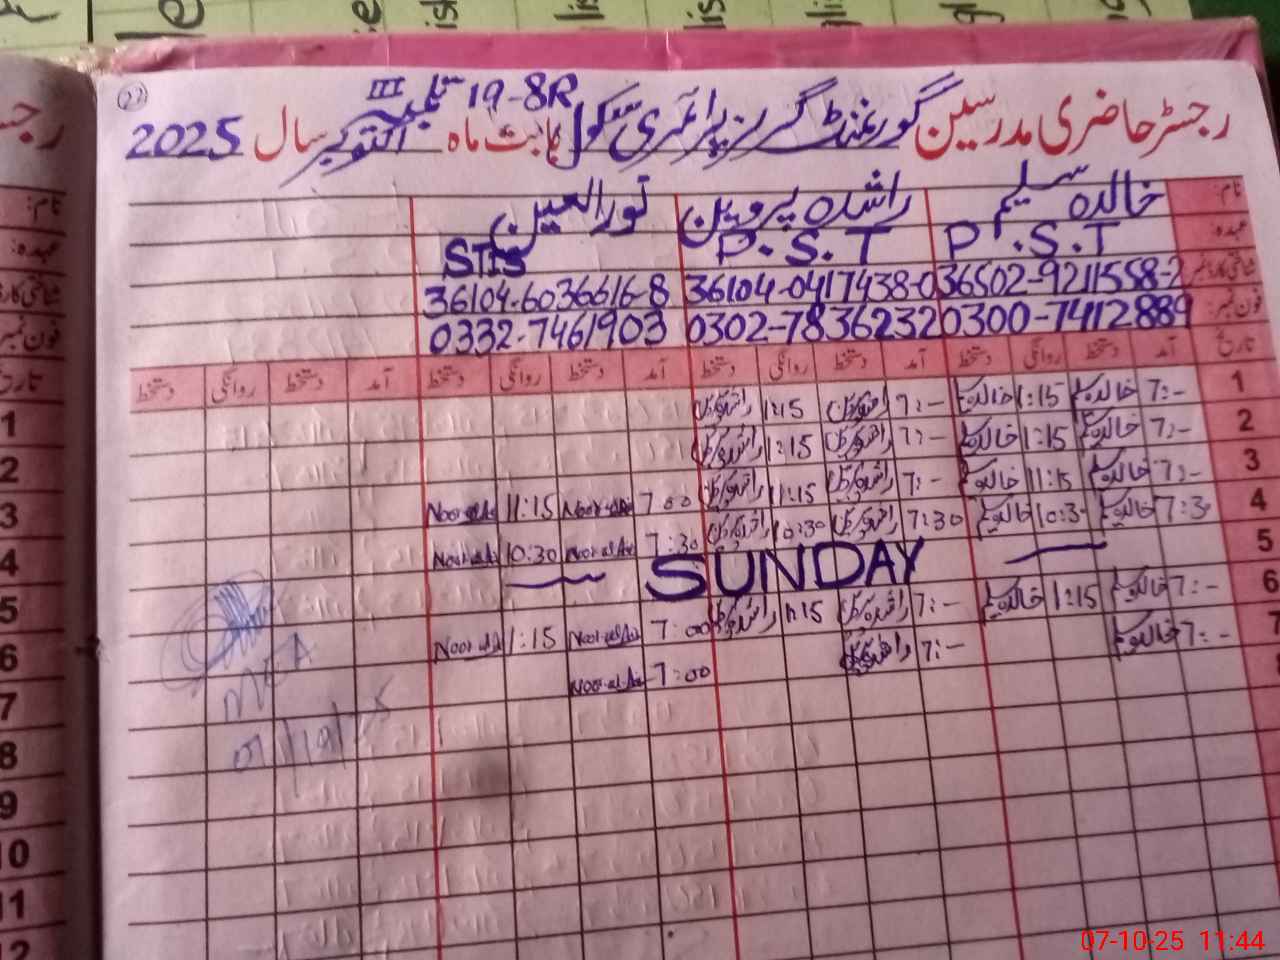 رجسٹر حاضری مدرسین گورنمنٹ گرلز پرائمری سکول 19-8R تلمبہ III بابت ماہ اکتوبر سال 2025
22
نام: خالدہ سلیم راشدہ پروین نورالعین
عہدہ: P.S.T P.S.T STIs
شناختی کارڈ نمبر 36502-9211558-2 36104-0417438-0 36104-6036616-8
فون نمبر: 0300-7412889 0302-7836232 0332-7461903
تاریخ آمد دستخط روانگی دستخط آمد دستخط روانگی دستخط آمد دستخط روانگی دستخط آمد دستخط روانگی دستخط
1 7:- خالدہ 1:15 خالدہ 7:- 1:15
2 7:- خالدہ 1:15 خالدہ 7:- 1:15
3 7:- خالدہ 11:15 خالدہ 7:- 11:15 7:00 Noor-ul-Ain 11:15 Noor-ul-Ain
4 7:30 خالدہ 10:30 خالدہ 7:30 10:30 7:30 Noor-ul-Ain 10:30 Noor-ul-Ain
5 SUNDAY
6 7:- خالدہ 1:15 خالدہ 7:- 1:15 7:00 Noor-ul-Ain 1:15 Noor-ul-Ain
7 7:- خالدہ 7:- 7:00 Noor-ul-Ain
8
رجسٹر
نام:
عہدہ:
شناختی کارڈ
فون نمبر
تاریخ
1
2
3
4
5
6
7
8
9
10
11
12
07-10-25 11:44